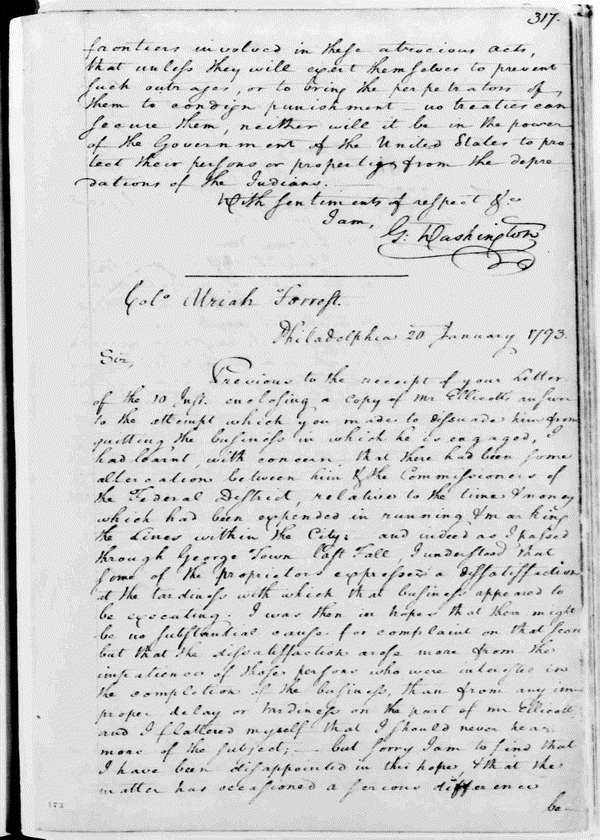 317.
frontiers involved in these atrocious acts,
that unless they will exert themselves to prevent
such outrages, or to bring the perpetrators of
them to condign punishment — no treaties can
secure them, neither will it be in the power
of the Government of the United States to pro
tect their persons or properties from the depre
dations of the Indians.
With sentiments of respect &c
I am,
G: Washington
Colo Uriah Forrest.
Philadelphia 20 January 1793.
Sir,
Previous to the receipt of your Letter
of the 10 Inst. enclosing a copy of Mr Ellicotts answer
to the attempt which you made to dissuade him from
quitting the business in which he is engaged, I
had learnt, with concern, that there had been some
altercation between him & the Commissioners of
the Federal District, relative to the time & money
which had been expended in running & marking
the Lines within the City; and indeed as I passed
through George Town last Fall, I understood that
some of the proprietors expressed a dissatisfaction
at the tardiness with which that business appeared to
be executing. I was then in hopes that there might
be no substantial cause for complaint on that score
but that the dissatisfaction arose more from the
impatience of those persons who were interested in
the completion of the business, than from any im
proper delay or tardiness on the part of Mr Ellicott
and I flattered myself that I should never hear
more of the subject; — but sorry I am to find that
I have been disappointed in this hope & that the
matter has occasioned a serious difference
be-